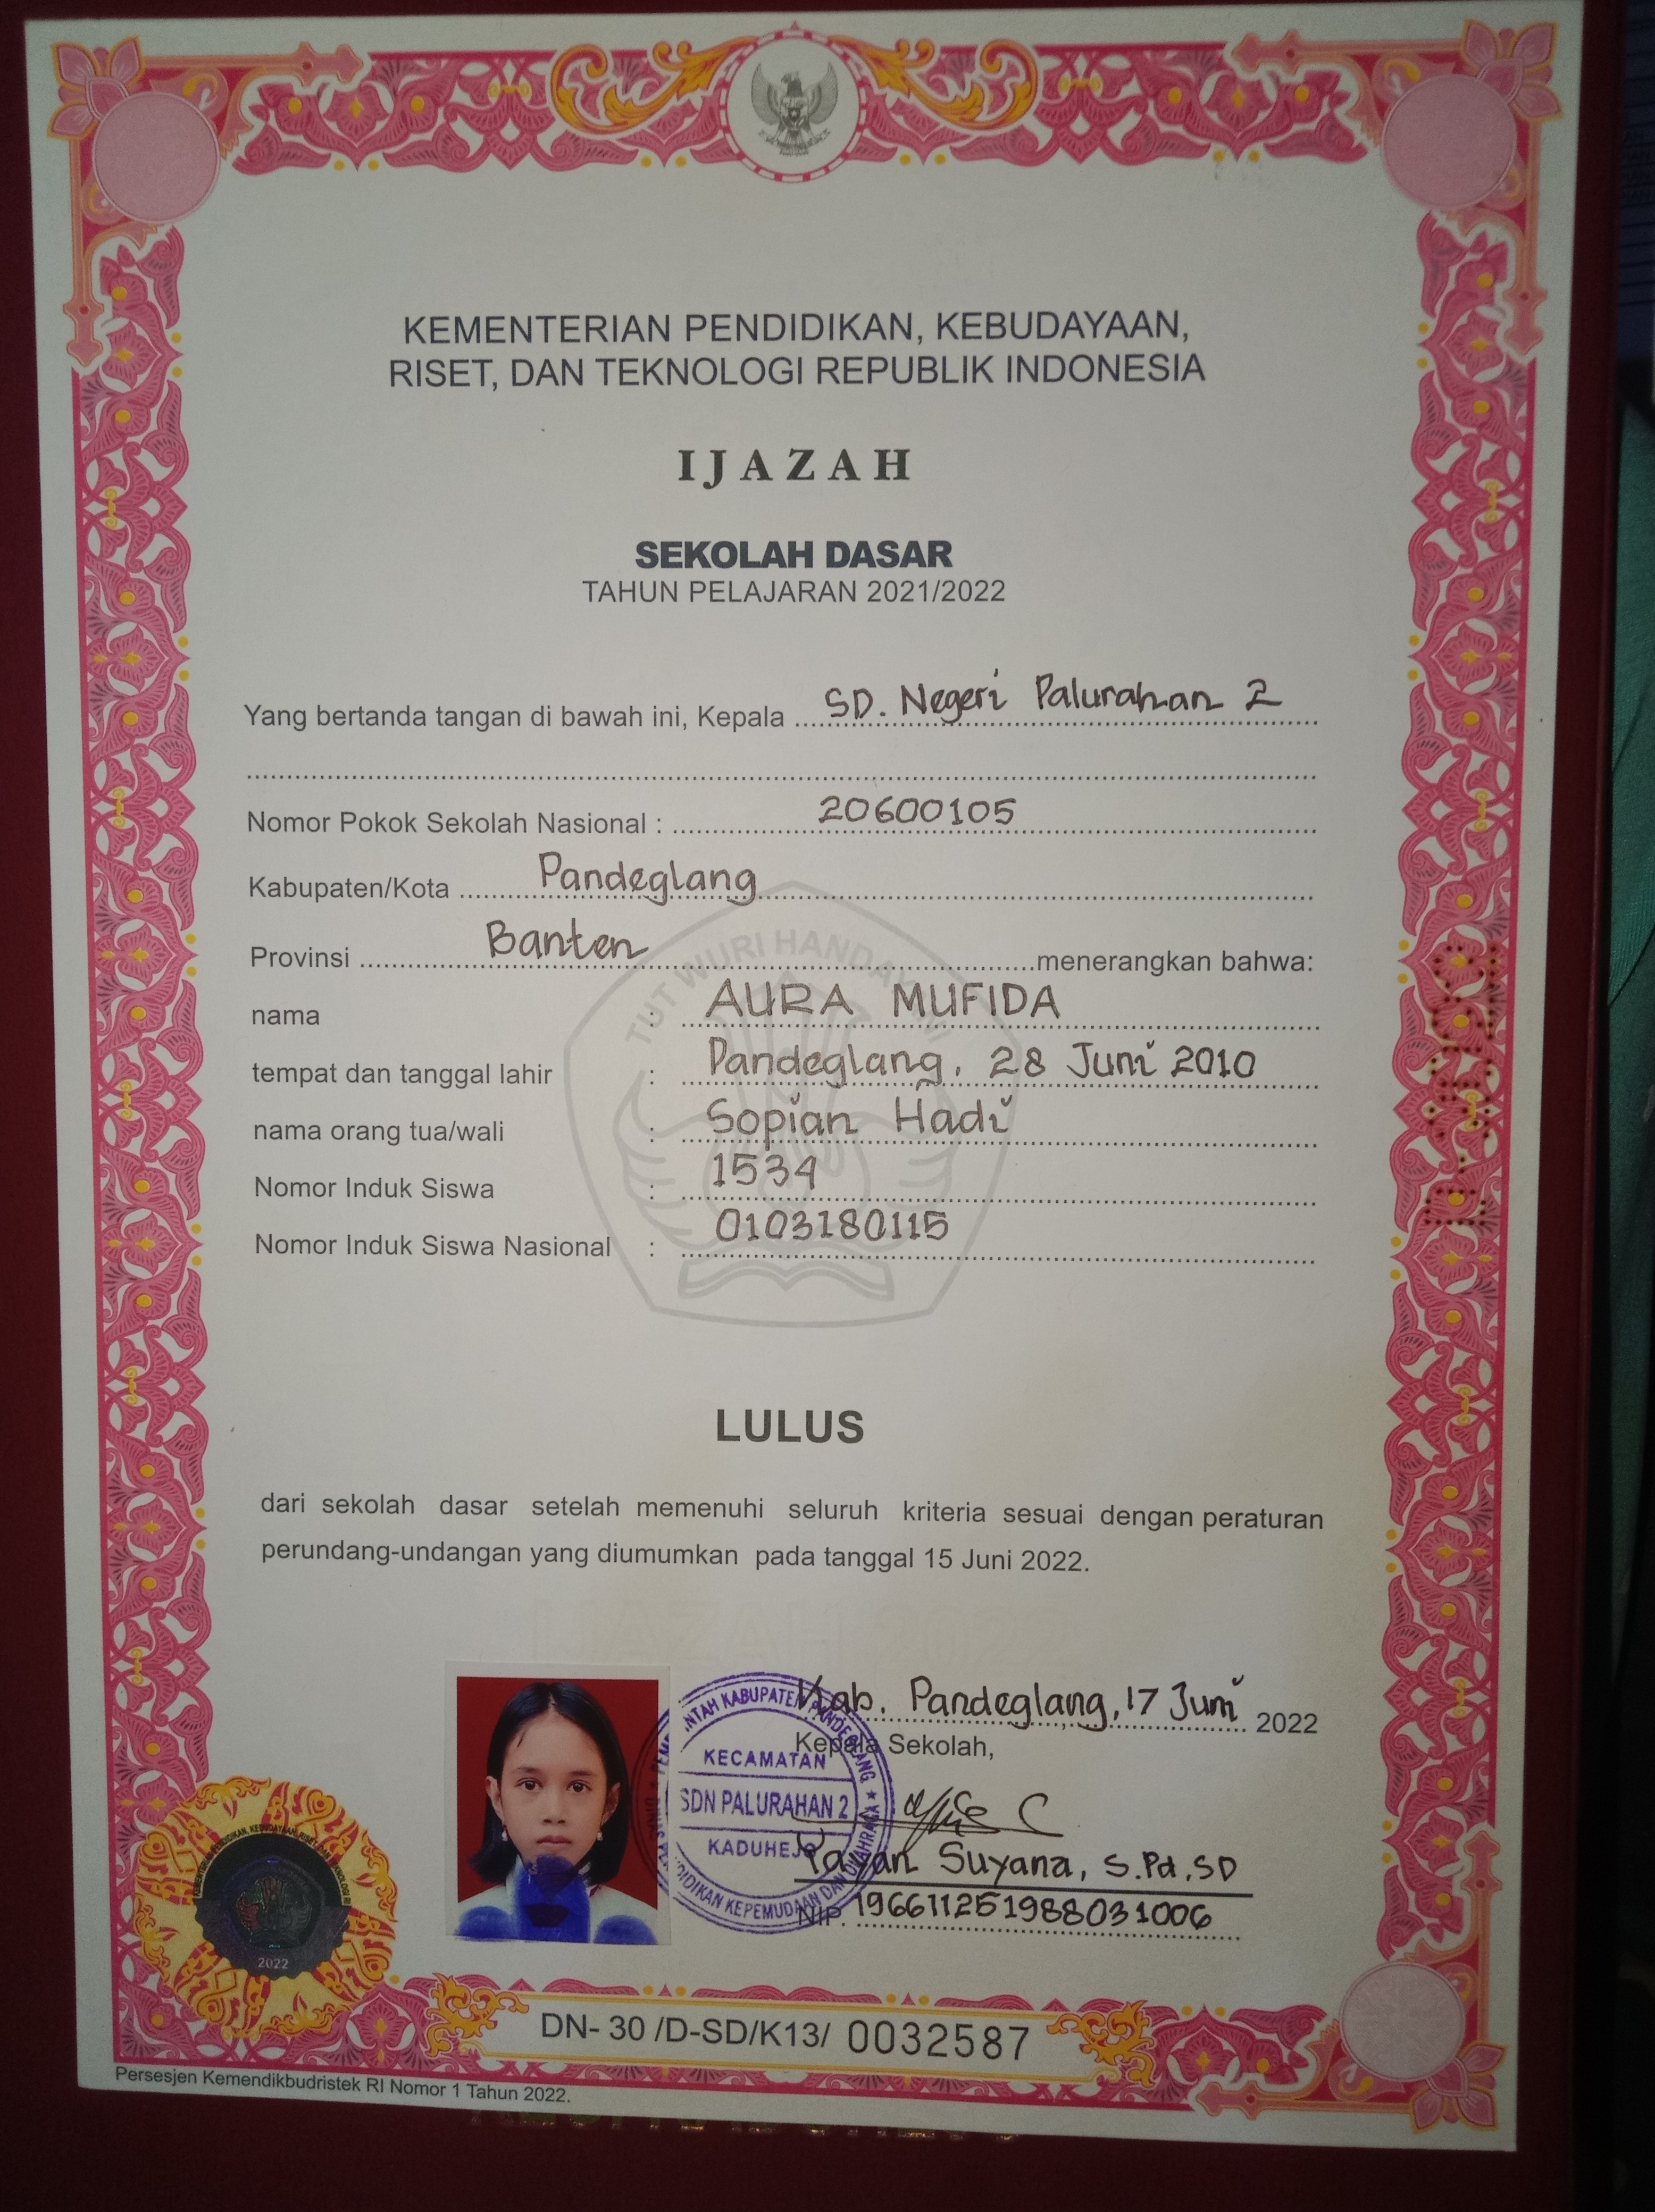 KEMENTERIAN PENDIDIKAN, KEBUDAYAAN,
RISET, DAN TEKNOLOGI REPUBLIK INDONESIA
IJAZAH
SEKOLAH DASAR
TAHUN PELAJARAN 2021/2022
Yang bertanda tangan di bawah ini, Kepala SD. Negeri Palurahan 2
Nomor Pokok Sekolah Nasional : 20600105
Kabupaten/Kota Pandeglang
Provinsi Banten menerangkan bahwa:
TUT WURI HANDAYANI
nama : AURA MUFIDA
tempat dan tanggal lahir : Pandeglang, 28 Juni 2010
nama orang tua/wali : Sopian Hadi
Nomor Induk Siswa : 1534
Nomor Induk Siswa Nasional : 0103180115
LULUS
dari sekolah dasar setelah memenuhi seluruh kriteria sesuai dengan peraturan
perundang-undangan yang diumumkan pada tanggal 15 Juni 2022.
Kab. Pandeglang, 17 Juni 2022
Kepala Sekolah,
KABUPATEN PANDEGLANG
KECAMATAN
SDN PALURAHAN 2
KADUHEJO
KEPEMUDAAN DAN OLAHRAGA
Yayan Suyana, S.Pd, SD
NIP. 196611251988031006
2022
DN- 30 /D-SD/K13/ 0032587
Persesjen Kemendikbudristek RI Nomor 1 Tahun 2022.